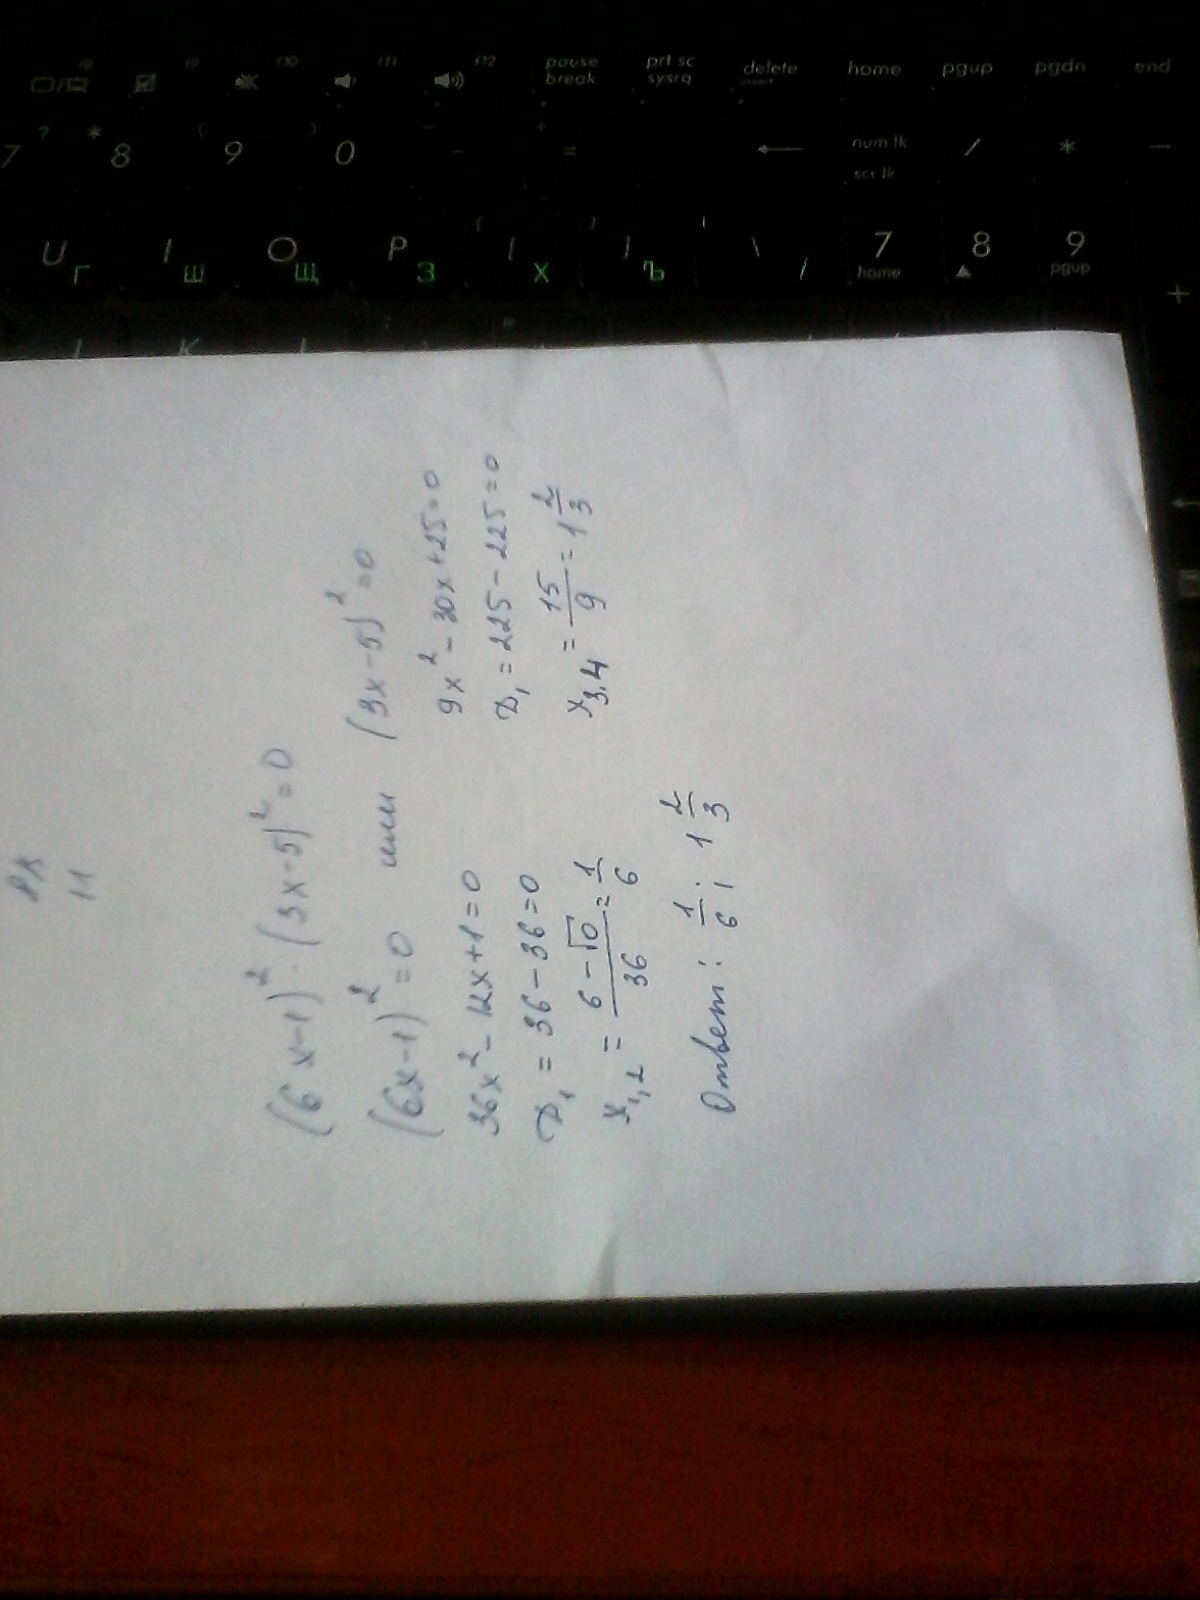 f8 f9 f10 f11 f12 pause break prt sc sysrq delete insert home pgup pgdn end
7 ? 8 * 9 ( 0 ) - _ = + ← num lk scr lk / * -
U Г I Ш O Щ P З [ { Х ] } Ъ \ | / 7 home 8 9 pgup +
11
(6x-1)² · (3x-5)² = 0
(6x-1)² = 0 или (3x-5)² = 0
36x² - 12x + 1 = 0 9x² - 30x + 25 = 0
D₁ = 36 - 36 = 0 D₁ = 225 - 225 = 0
x₁,₂ = (6 - √0)/36 = 1/6 x₃,₄ = 15/9 = 1 2/3
Ответ: 1/6; 1 2/3